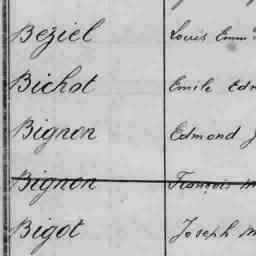 Béziel Louis Emm
Bichot Emile Edm
Bignon Edmond J
Bignon François M
Bigot Joseph M